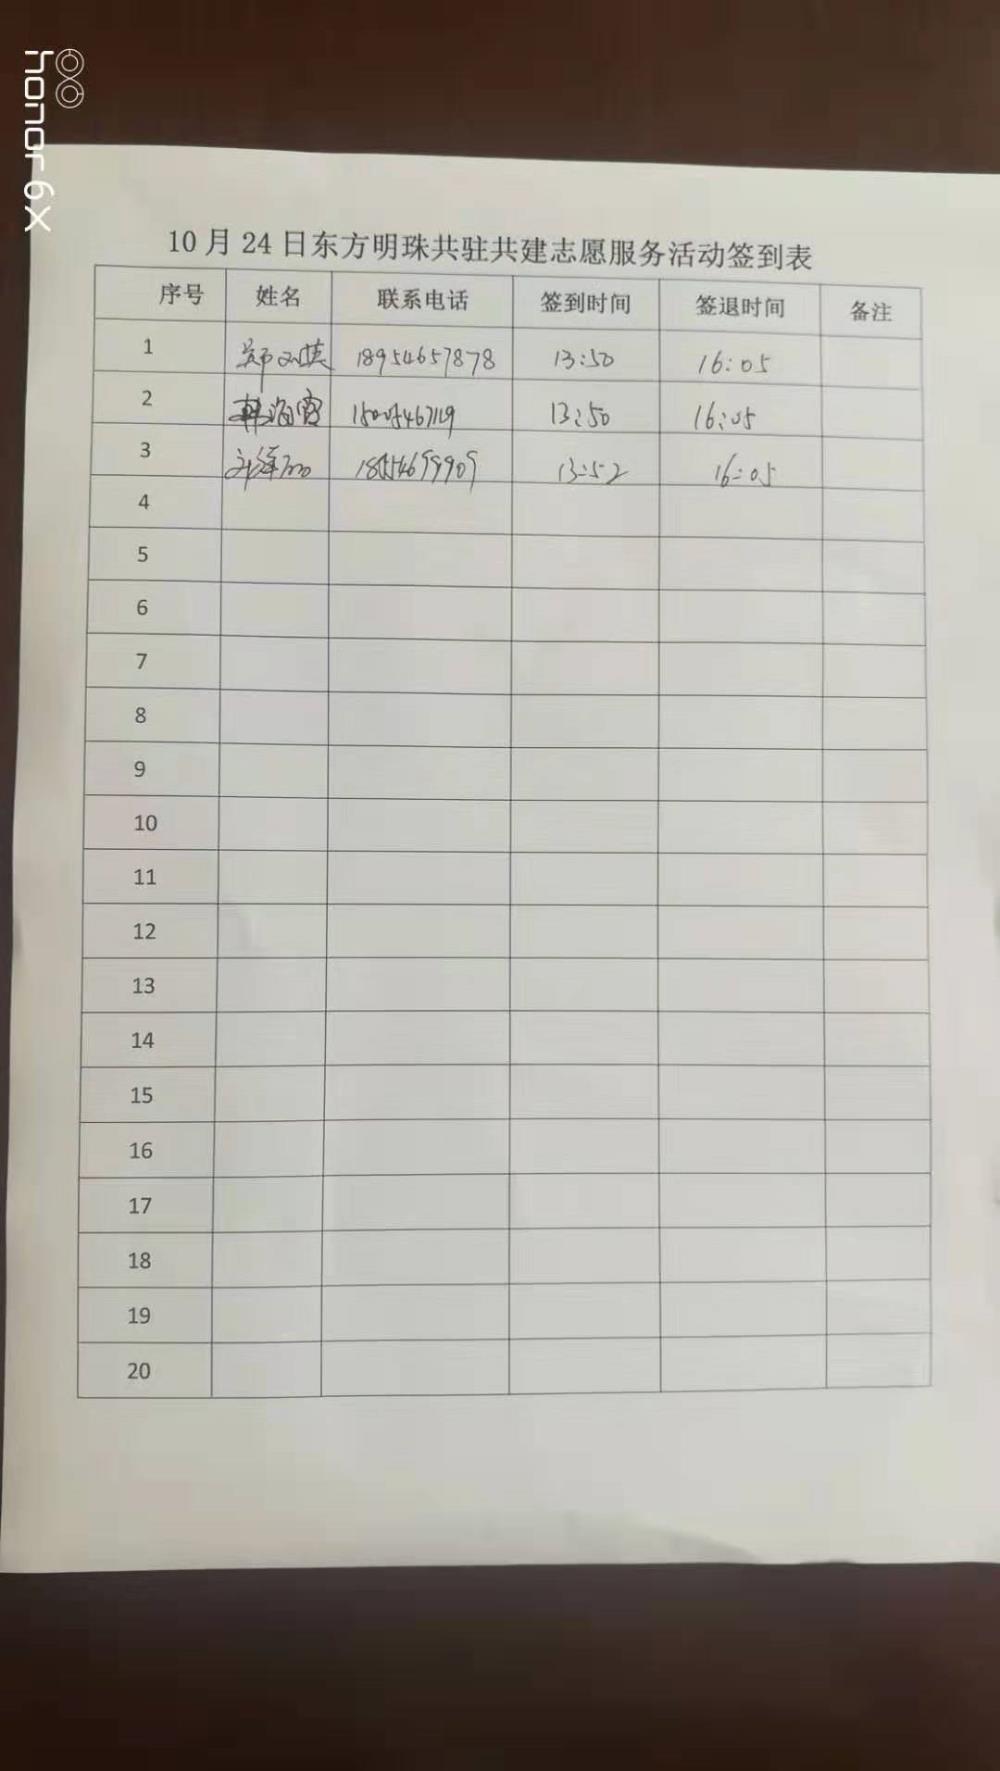 honor 6X
10月24日东方明珠共驻共建志愿服务活动签到表
序号 姓名 联系电话 签到时间 签退时间 备注
1 18954657878 13:50 16:05
2 13:50 16:05
3 13:52 16:05
4
5
6
7
8
9
10
11
12
13
14
15
16
17
18
19
20